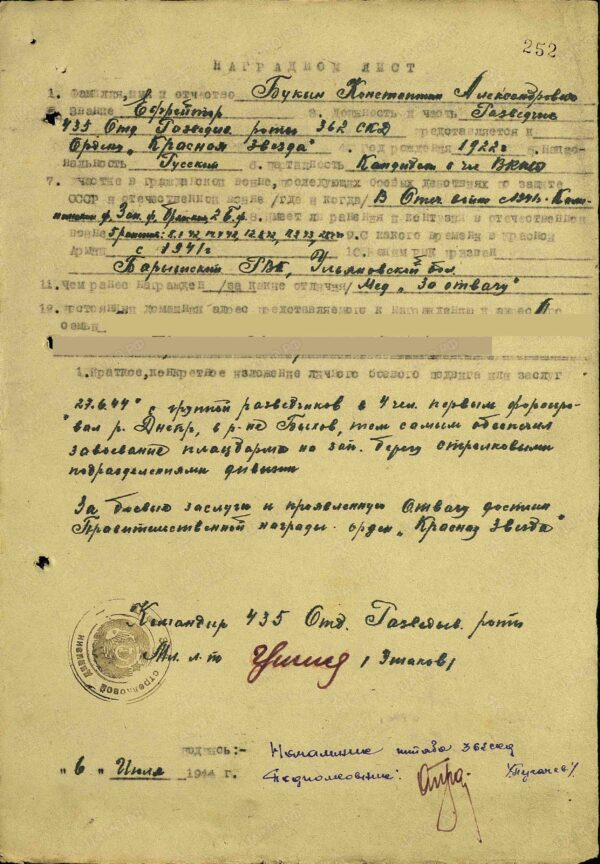 252
НАГРАДНОЙ ЛИСТ
1. Фамилия, имя и отчество Букин Константин Александрович
2. Звание Ефрейтор 3. Должность и часть Разведчик
435 Отд. Разведыв. роты 362 СКД представляется к
Ордену „Красная Звезда" 4. Год рождения 1922 г 5. Нацио-
нальность Русский 6. партийность Кандидат в чл ВКП(б)
7. участие в гражданской войне, последующих боевых действиях по защите
СССР и отечественной войне /где и когда/ В Отеч войне с 1941г. Кали-
нинский ф. Зап. ф. 2 Б.ф. 8. имеет ли ранения и контузии в отечественной
войне 9. С какого времени в Красной
Армии с 1941 г 10. Каким РВК призван
Барышский РВК, Ульяновской обл.
11. чем ранее награжден /за какие отличия/ Мед „За отвагу"
12. постоянный домашний адрес представляемого к награждению и адрес его
семьи
1. Краткое, конкретное изложение личного боевого подвига или заслуг
„27.6.44" с группой разведчиков в 4 чел. первым форсиро-
вал р. Днепр, в р-не Быхов, тем самым обеспечил
завоевание плацдарма на зап. берегу стрелковыми
подразделениями дивизии
За боевые заслуги и проявленную Отвагу достоин
Правительственной награды. орден „Красная Звезда"
Командир 435 Отд. Разведыв. роты
Мл. л-т /Ушаков/
СТРЕЛКОВОЙ ДИВИЗИИ
подпись:- Начальник штаба 362 скд
Подполковник: /Пугачев/
„6" Июля 1944 г.